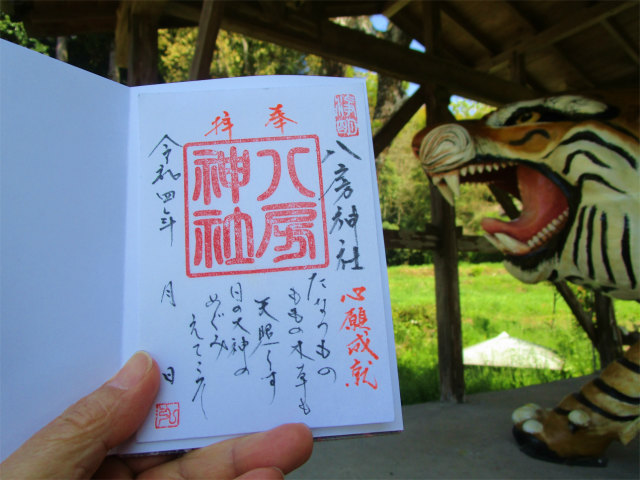 奉拝
八房神社
八房神社
心願成就
たなつもの
ももの木草も
天照らす
日の大神の
めぐみ
えてこそ
令和四年 月 日